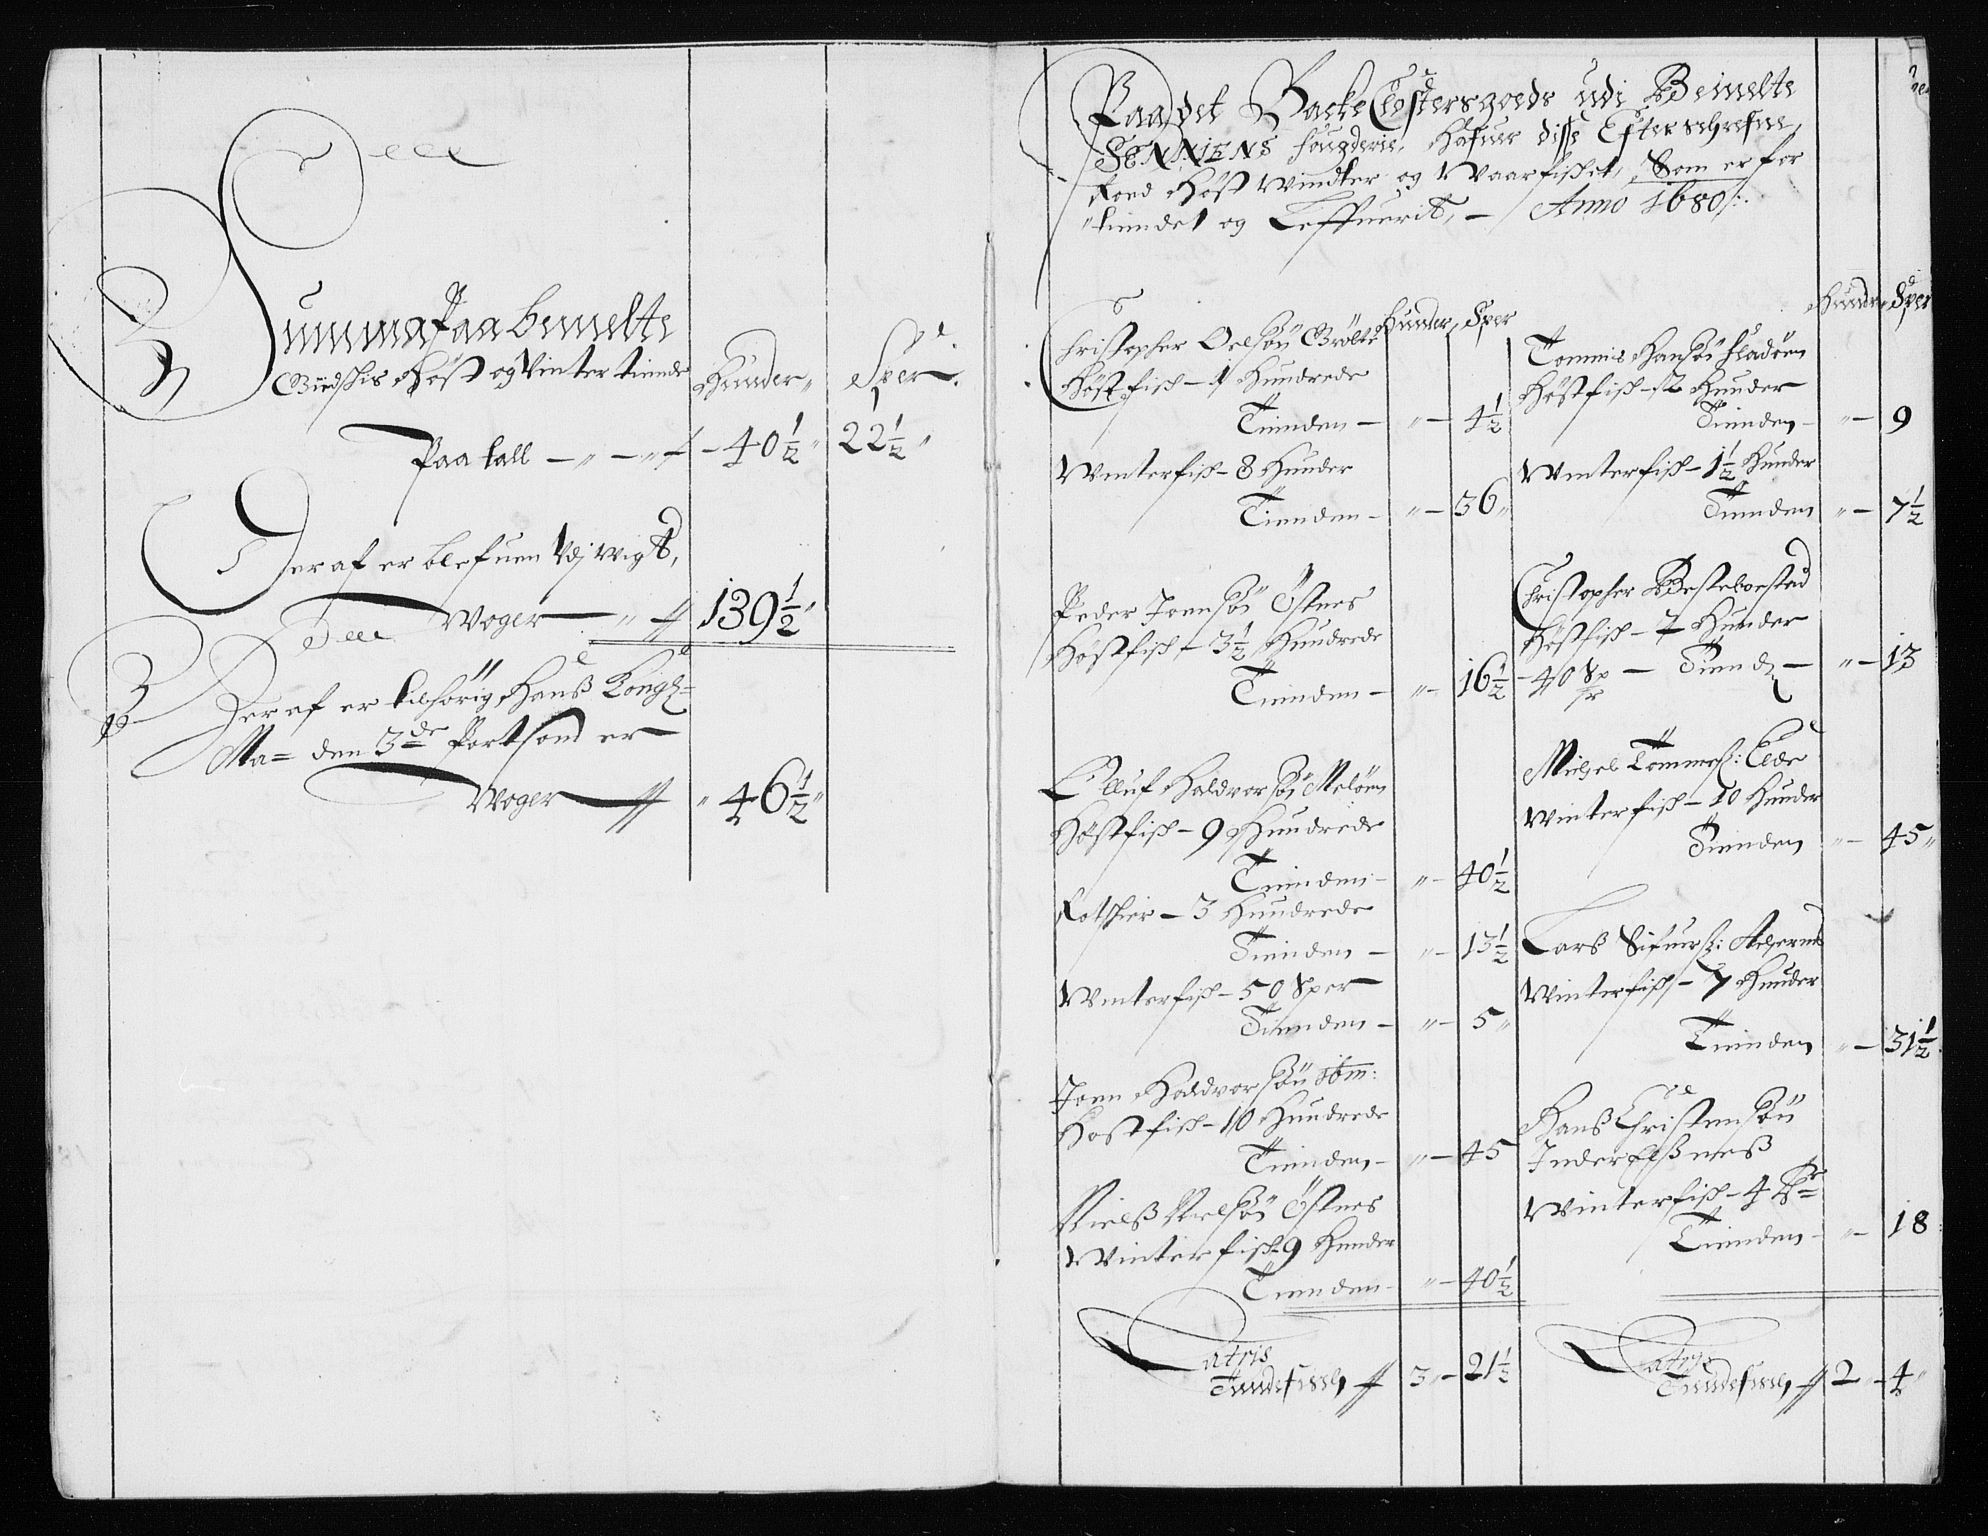 Summa Paa bemelte
Giedschis Høst og Vinter tiende
Hunder Sper
Paa tall — 40½ 22½
Der af er blefuen Vdj wigt,
Woger — 139½
Der af er tilhörig Hans Kongl=
Ma= den 3de Part som er
Woger — 46½
Paa det Backe Closters goeds udi Bemelte
SENNIENS fougderie, hafuer disse Efterschrefne,
Roed Høst Windter og Waarfischet, Som er for
tiendet og Leffuerit, — Anno 1680:
Hunder Sper
Christopher Oelsøn
Høstfisch — 1 Hundrede
Tienden — 4½
Winterfisch — 8 Hunder
Tienden — 36
Peder Joensøn Østnes
Høstfisch — 3½ Hundrede
Tienden — 16½
Olluf Haldvorsøn Meløen
Høstfisch — 9 Hundrede
Tienden — 40½
Rotscher — 3 Hundrede
Tienden — 13½
Winterfisch — 50 Sper
Tienden — 5
Joen Haldvorsøn ibm:
Høstfisch — 10 Hundrede
Tienden — 45
Nielss Nielsøn Østnes
Winterfisch 9 Hunder
Tienden — 40½
Latris
Tiendefisch 3 — 21½
Hunder Sper
Tommis Hansøn fladøen
Høstfisch — 2 Hunder
Tienden — 9
Winterfisch — 1½ Hunder
Tienden — 7½
Christopher
Høstfisch — 2 Hunder
40 Sp — Tiend — 13
Michel Tommes: Elde
Winterfisch — 10 Hunder
Tienden — 45
Larss Sifuers:
Winterfisch — 7 Hunder
Tienden — 31½
Hanss Christensøn
Winterfisch — 4
Tienden — 18
Latris
Tiendefisch 2 — 4